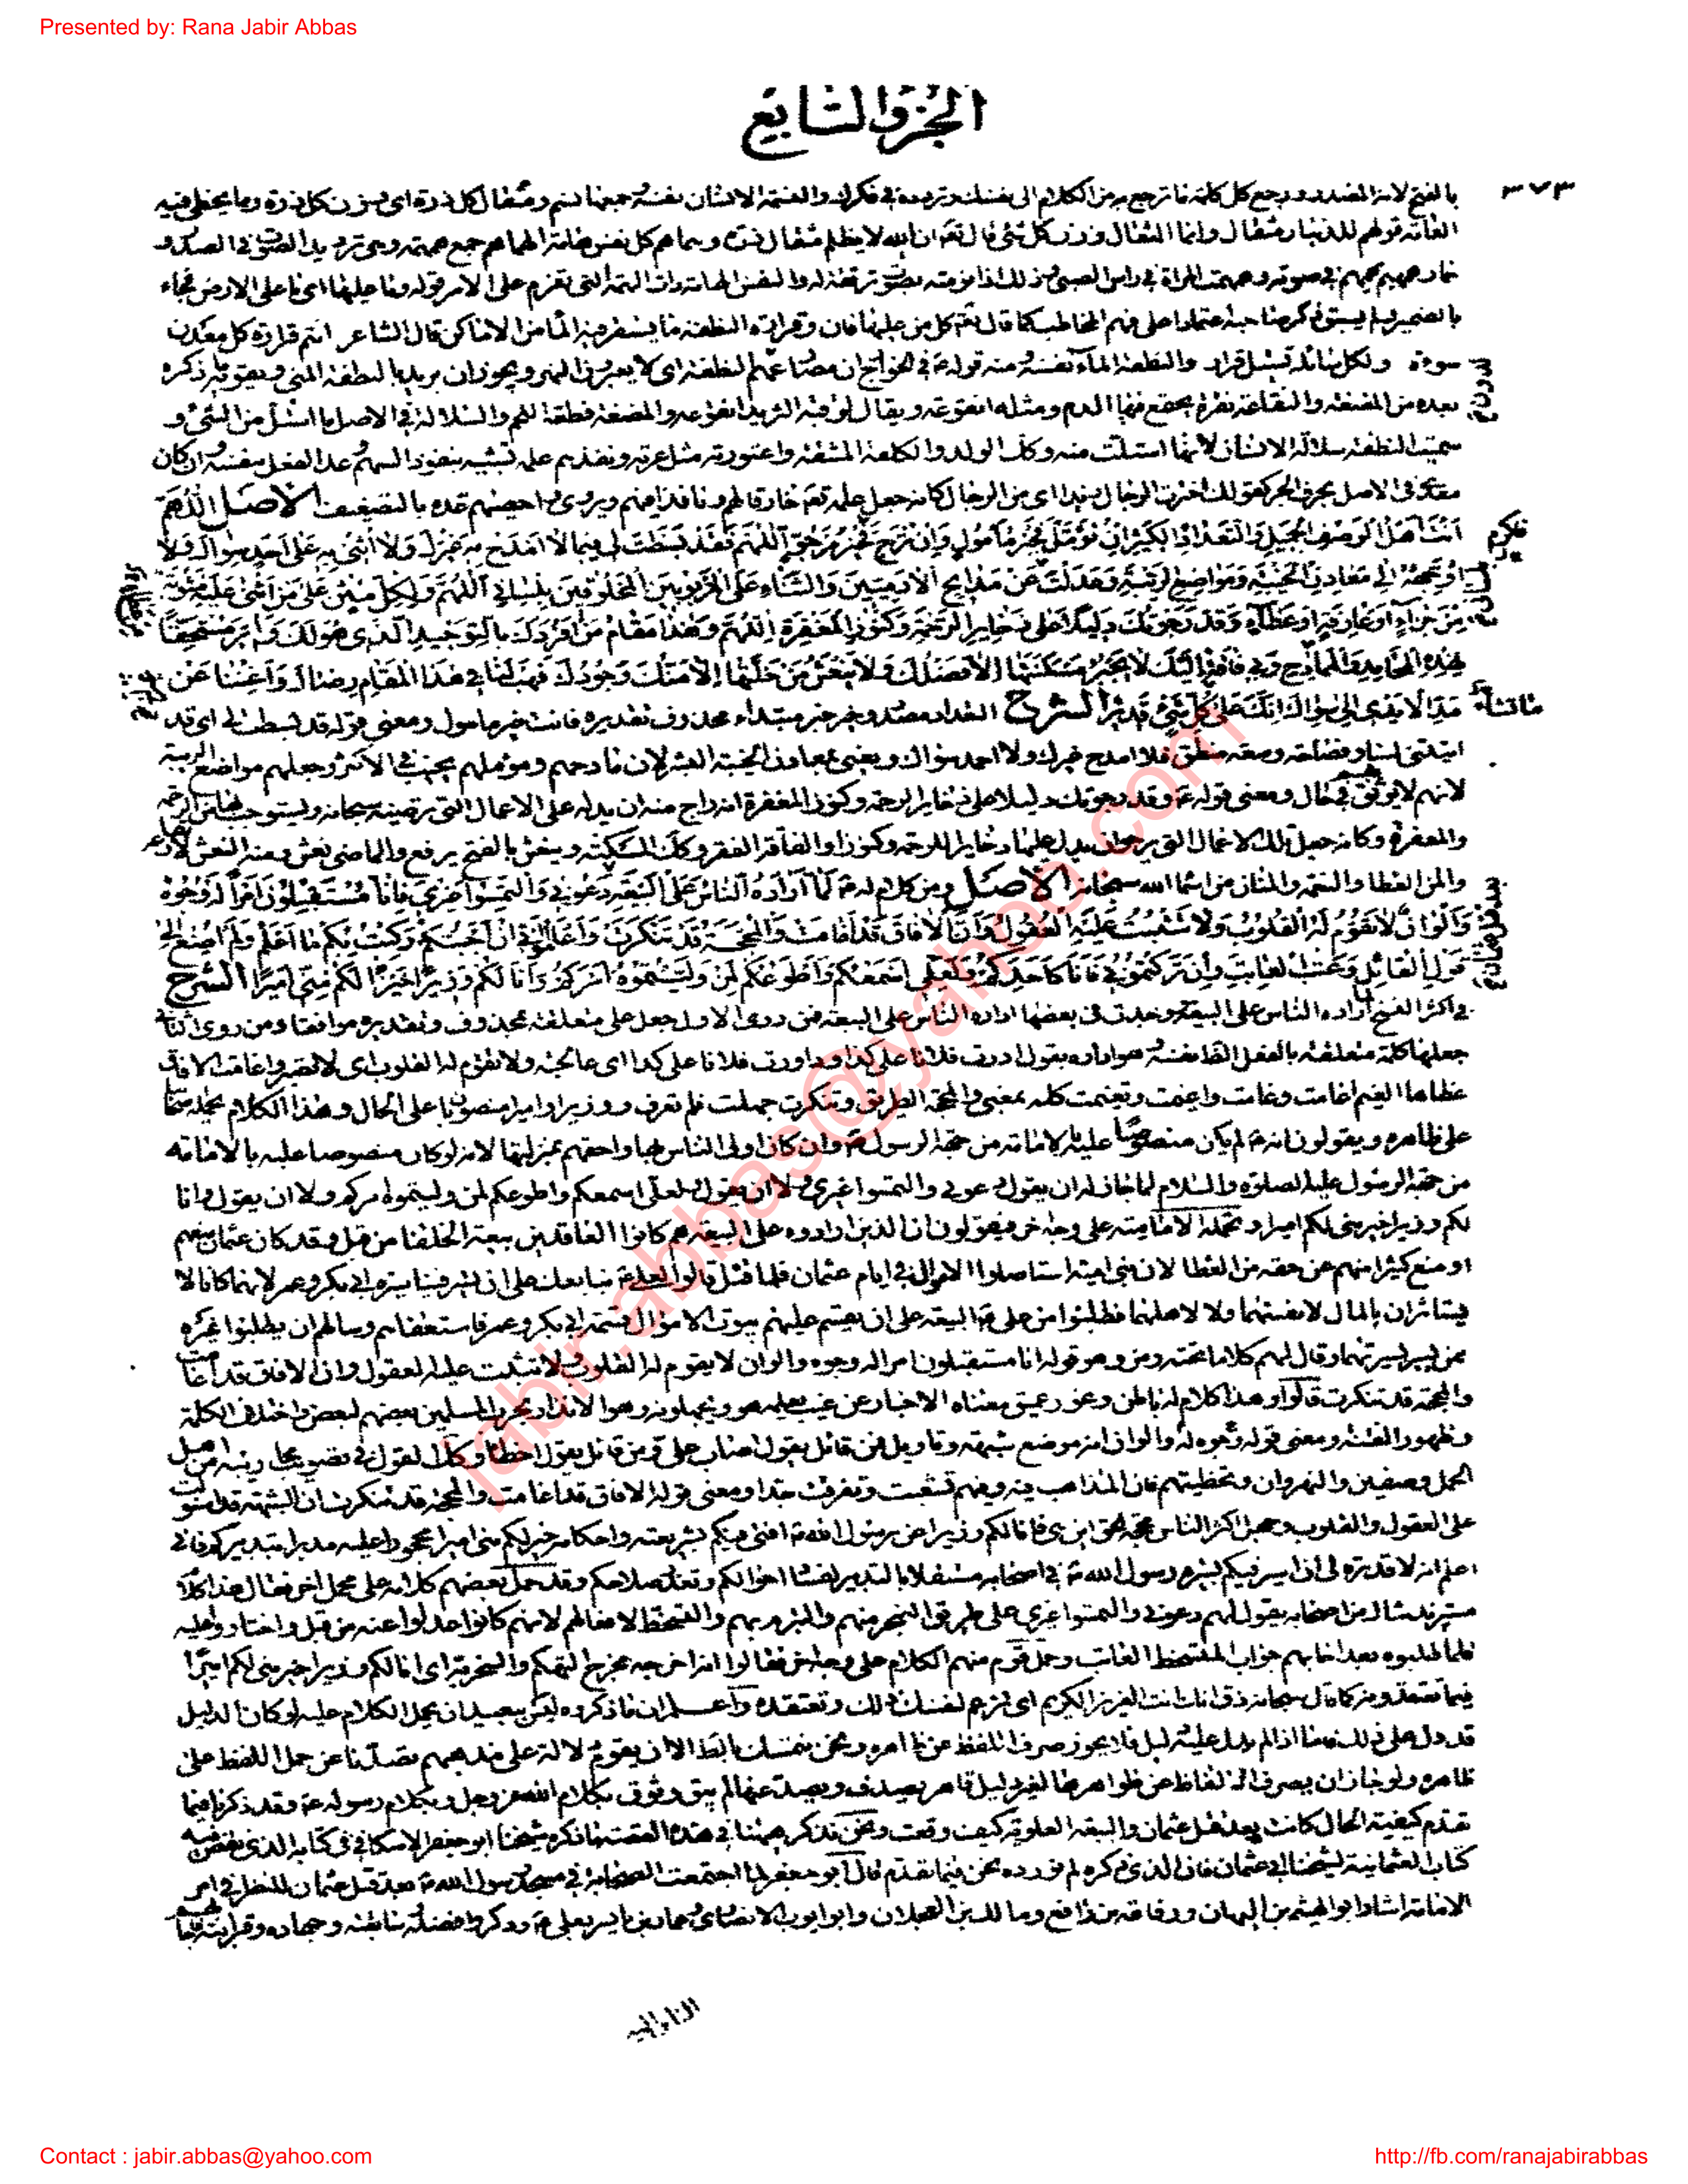 Presented by: Rana Jabir Abbas
الجزو السابع
٣٧٣
بالفتح لانه المصدر ورجع كل كلمة ما ترجع به من الكلام الى نفسك وتردده في فكرك والنسمة الانسان نفسه وجمعها نسم ومثقال كل ذرة اى وزن كل ذرة ومما يخطئ فيه
العامة قولهم للدينار مثقال وانما المثقال وزن كل شئ قال تعالى ان الله لا يظلم مثقال ذرة وهماهم كل نفس هامة الهماهم جمع همهمة وهى ترديد الصوت في الصدر و
حمار همهيم يهمهم في صوته وهمهمت المراة في راس الصبى وذلك اذا نومته بصوت ترققه له والنفس الهامة ذات الهمة التى تعزم على الامر قوله وما عليها اى ما على الارض فجاء
بالضمير ولم يسبق ذكر صاحبه اعتمادا على فهم المخاطب كما قال تعالى كل من عليها فان وقرارة النطفة ما يستقر فيه الماء من الاماكن قال الشاعر انتم قرارة كل معدن
سوءة ولكل سائلة تسيل قرار والنطفة الماء نفسه ومنه قوله ع في الخوارج ان مصارعهم النطفة اى لا يعبرون النهر ويجوز ان يريد بالنطفة المنى ويقويه ما ذكره
بعده من المضغة والنقاعة نقرة يجتمع فيها الدم ومثله انقوعة ويقال لوقبة الثريد انقوعة والمضغة قطعة اللحم والسلالة في الاصل ما استل من الشئ و
سميت النطفة سلالة الانسان لانها استلت منه وكذلك الولد والكلفة المشقة واعتورته مثل عرته ونفذهم علمه تشبيه بنفوذ السهم وعدى الفعل بنفسه وان كان
معدى في الاصل بحرف الجر كقولك اخترت الرجال زيدا اى من الرجال كانه جعل علمه تعالى خارقا لهم ونافذا فيهم ويروى واحصاهم عده بالتضعيف الاصل اللهم
انت اهل الوصف الجميل والتعداد الكثير ان تؤمل فخير مأمول وان ترج فخير مرجو اللهم فقد بسطت لى فيما لا امدح به غيرك ولا اثنى به على احد سواك ولا
اوجهه الى معادن الخيبة ومواضع الريبة وعدلت عن مدائح الآدميين والثناء على المربوبين المخلوقين بلسانى اللهم ولكل مثن على من اثنى عليه مثوبة
من جزاء او عارفة من عطاء وقد رجوتك دليلا على ذخائر الرحمة وكنوز المغفرة اللهم وهذا مقام من افردك بالتوحيد الذى هو لك ولم ير مستحقا
لهذه المحامد والممادح وبى فاقة اليك لا يجبر مسكنتها الا فضلك ولا ينعش من خلتها الا منك وجودك فهب لنا في هذا المقام رضاك واغننا عن
مد الايدى الى سواك انك على كل شئ قدير الشرح التعداد مصدر وخير خبر مبتداء محذوف تقديره فانت خير مامول ومعنى قوله قد بسطت لى اى قد
ما تشاء
اتيتنى لسنا وفصاحة وسعة منطق فلا امدح غيرك ولا احمد سواك ويعنى بمعادن الخيبة البشر لان مادحهم ومؤملهم يخيب في الاكثر وجعلهم مواضع الريبة
لانهم لا يوثق بهم في حال ومعنى قوله ع وقد رجوتك دليلا على ذخائر الرحمة وكنوز المغفرة انه راج منه ان يدله على الاعمال التى ترضيه سبحانه ويستوجب بها منه الرحمة
والمغفرة وكانه جعل تلك الاعمال التى يرجو ان يدل عليها ذخاير للرحمة وكنوزا والفاقة الفقر وكذلك المسكنة وينعش بالفتح يرفع والماضى نعش ومنه النعش لارتفاعه
والمن العطاء والنعمة والمنان من اسماء الله سبحانه الاصل ومن كلام له ع لما اراده الناس على البيعة دعونى والتمسوا غيرى فانا مستقبلون امرا له وجوه
والوان لا تقوم له القلوب ولا تثبت عليه العقول وان الآفاق قد اغامت والمحجة قد تنكرت واعلموا انى ان اجبتكم ركبت بكم ما اعلم ولم اصغ الى
قول القائل وعتب العاتب وان تركتمونى فانا كاحدكم ولعلى اسمعكم واطوعكم لمن وليتموه امركم وانا لكم وزيرا خير لكم منى اميرا الشرح
في اكثر النسخ اراده الناس على البيعة ووجدت في بعضها اداره الناس على البيعة فمن روى الاول جعل على متعلقة بمحذوف وتقديره موافقا ومن روى الثانى
جعلها متعلقة بالفعل الظاهر نفسه وهو اداره يقول ادرت فلانا على كذا وداورت فلانا على كذا اى عالجته ولا تقوم له القلوب اى لا تصبر واغامت الآفاق
غطاها الغيم اغامت وغامت واغيمت وتغيمت كله بمعنى والمحجة الطريق وتنكرت جهلت فلم تعرف ووزيرا واميرا منصوبان على الحال وهذا الكلام يحمله اصحابنا
على ظاهره ويقولون انه ع لم يكن منصوصا عليه بالامامة من جهة الرسول ص وان كان اولى الناس بها واحقهم بمنزلتها لانه لو كان منصوصا عليه بالامامة
من جهة الرسول عليه الصلوة والسلام لما جاز له ان يقول دعونى والتمسوا غيرى ولا ان يقول ولعلى اسمعكم واطوعكم لمن وليتموه امركم ولا ان يقول وانا
لكم وزيرا خير منى لكم اميرا وتحمله الامامية على وجه اخر فيقولون ان الذين ارادوه على البيعة هم كانوا العاقدين بيعة الخلفاء من قبل وقد كان عثمان منعهم
او منع كثيرا منهم عن حقه من العطاء لان بنى امية استاصلوا الاموال في ايام عثمان فلما قتل قالوا لعلى ع نبايعك على ان تسير فينا سيرة ابى بكر وعمر لانهما كانا لا
يستاثران بالمال لانفسهما ولا لاهلهما فطلبوا من على ع البيعة على ان يقسم عليهم بيوت الاموال قسمة ابى بكر وعمر فاستعفاهم وسالهم ان يطلبوا غيره
ممن يسير بسيرتهما وقال لهم كلاما تحته رمز وهو قوله انا مستقبلون امرا له وجوه والوان لا يقوم له القلوب ولا تثبت عليه العقول وان الآفاق قد اغامت
والمحجة قد تنكرت قالوا وهذا كلام له باطن وغور عميق معناه الاخبار عن غيب يعلمه هو ويجهلونه وهو الانذار بحرب المسلمين بعضهم لبعض واختلاف الكلمة
وظهور الفتنة ومعنى قوله وجوه والوان انه موضع شبهة وتاويل فمن قائل يقول اصاب على ومن قائل يقول اخطأ وكذلك القول في تصويب محاربيه من اهل
الجمل وصفين والنهروان وتخطيتهم فان المذاهب فيه وفيهم تشعبت وتفرقت جدا ومعنى قوله الآفاق قد اغامت والمحجة قد تنكرت ان الشبهة قد استولت
على العقول والقلوب وجهل اكثر الناس محجة الحق اين هى فانا لكم وزيرا عن رسول الله ص افتى فيكم بشريعته واحكامه خير لكم منى اميرا محجورا عليه مدبرا بتدبيركم فانى
اعلم انه لا قدرة لى ان اسير فيكم بسيرة رسول الله ص في اصحابه مستقلا بالتدبير لفساد احوالكم وتعذر صلاحكم وقد حمل بعضهم كلامه على محمل اخر فقال هذا كلام
مستزيد شاك من اصحابه يقول لهم دعونى والتمسوا غيرى على طريق الضجر منهم والتبرم بهم والتسخط لافعالهم لانهم كانوا عدلوا عنه من قبل واختاروا عليه
فلما طلبوه بعد اجابهم جواب المتسخط العاتب وحمل قوم منهم الكلام على وجه اخر فقالوا انه اخرجه مخرج التهكم والسخرية اى انا لكم وزيرا خير منى لكم اميرا
فيما تعتقدونه كما قال سبحانه ذق انك انت العزيز الكريم اى تزعم لنفسك ذلك وتعتقده واعلم ان ما ذكروه ليس ببعيد ان يحمل الكلام عليه لو كان الدليل
قد دل على ذلك فاما اذا لم يدل عليه دليل فلا يجوز صرف اللفظ عن ظاهره ونحن نتمسك بالظاهر الا ان يقوم دلالة على مذهبهم تصدنا عن حمل اللفظ على
ظاهره ولو جاز ان يصرف الالفاظ عن ظواهرها لغير دليل قاهر يصدف ويصد عنها لم يبق وثوق بكلام الله عز وجل وبكلام رسوله ع وقد ذكرنا فيما
تقدم كيفية الحال كانت بعد قتل عثمان والبيعة العلوية كيف وقعت ونحن نذكر ههنا في هذه القصة ما ذكره شيخنا ابو جعفر الاسكافى في كتابه الذى نقض فيه
كتاب العثمانية لشيخنا ابى عثمان فان الذى ذكره لم نورده نحن فيما تقدم قال ابو جعفر لما اجتمعت الصحابة في مسجد رسول الله ص بعد قتل عثمان للنظر في امر
الامامة اشار ابو الهيثم بن التيهان ورفاعة بن رافع ومالك بن العجلان وابو ايوب الانصارى وعمار بن ياسر بعلى ع وذكروا فضله وسابقته وجهاده وقرابته
jabir.abbas@yahoo.com
Contact : jabir.abbas@yahoo.com
http://fb.com/ranajabirabbas